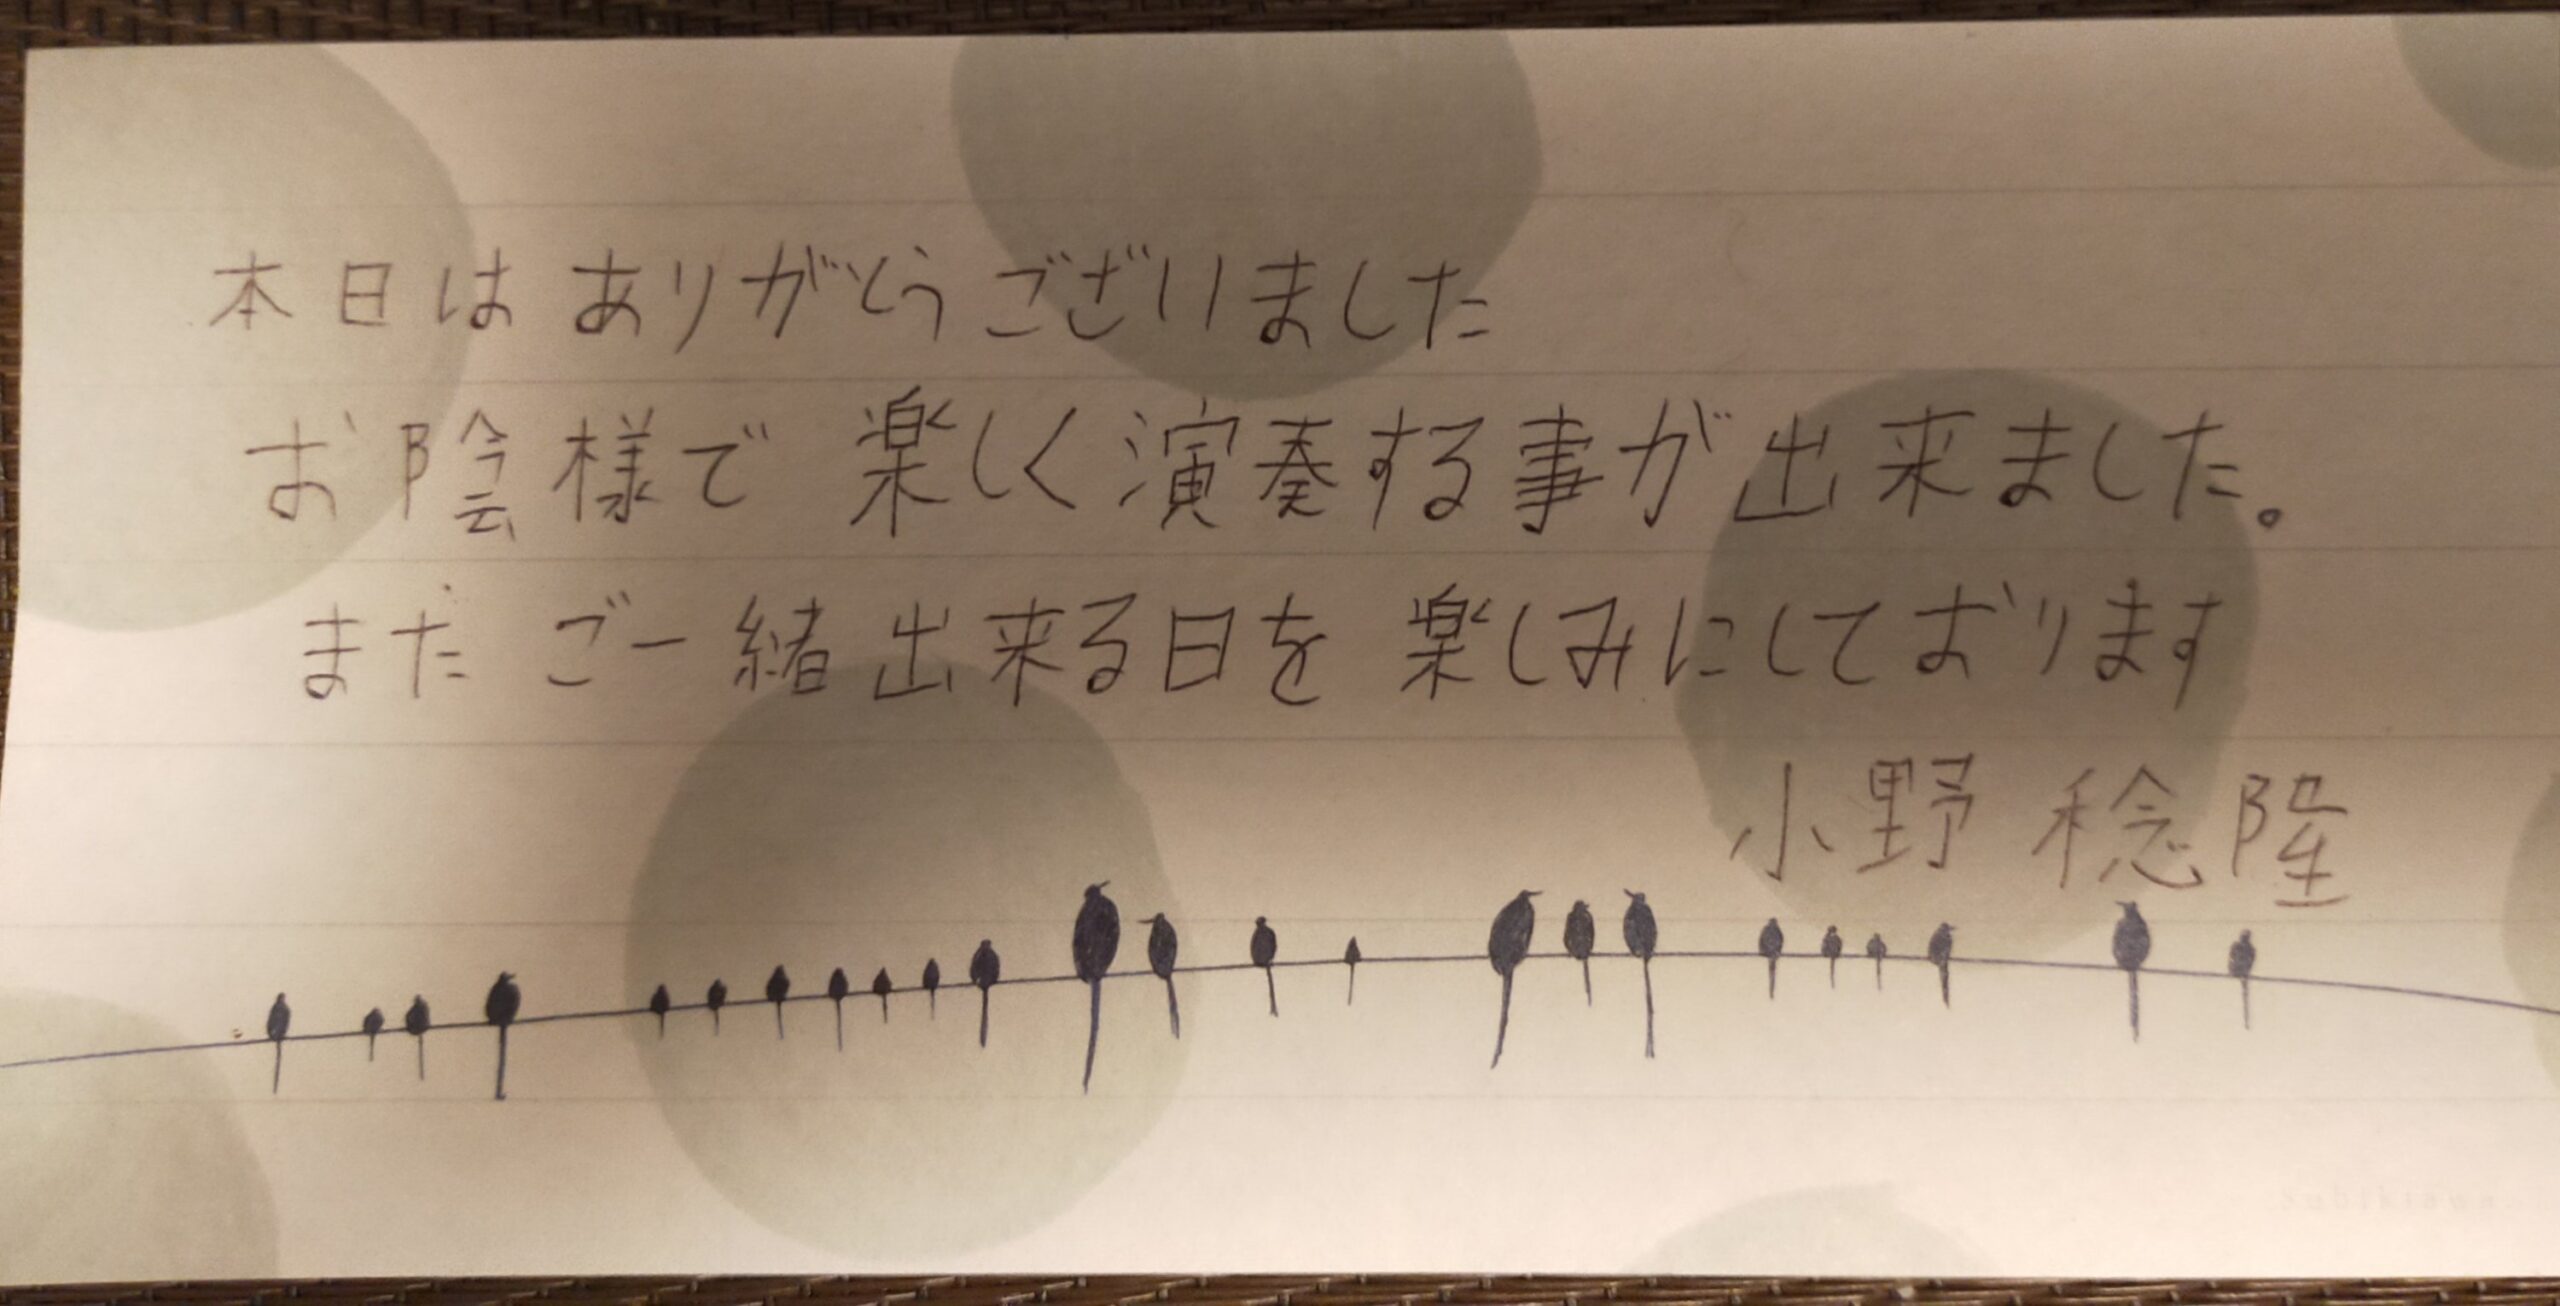 本日はありがとうございました
お陰様で 楽しく演奏する事が出来ました。
また ご一緒出来る日を 楽しみにしております
小野 稔隆